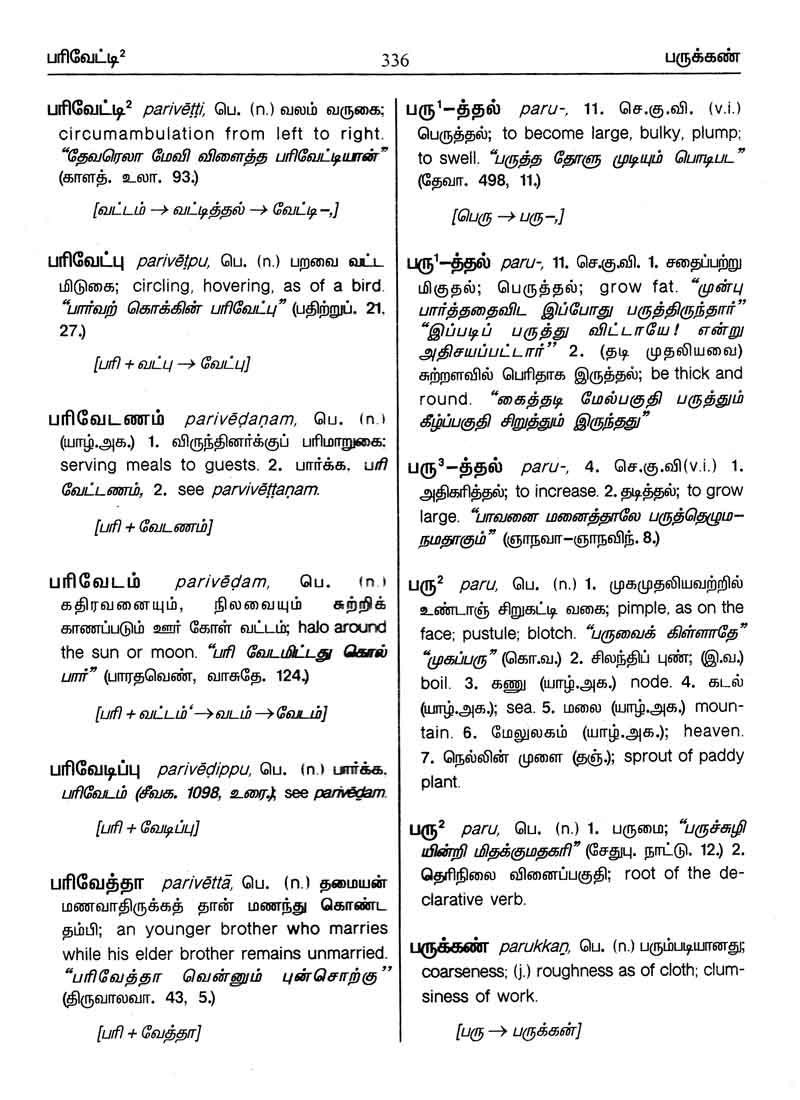 பரிவேட்டி²
336
பருக்கண்
பரிவேட்டி² parivēṭṭi, பெ. (n.) வலம் வருகை;
circumambulation from left to right.
“தேவரெலா மேவி விளைத்த பரிவேட்டியான்”
(காளத். உலா. 93.)
[வட்டம் → வட்டித்தல் → வேட்டி–,]
பரிவேட்பு parivēṭpu, பெ. (n.) பறவை வட்ட
மிடுகை; circling, hovering, as of a bird.
“பார்வற் கொக்கின் பரிவேட்பு” (பதிற்றுப். 21,
27.)
[பரி + வட்பு → வேட்பு]
பரிவேடணம் parivēḍaṇam, பெ. (n.)
(யாழ்.அக.) 1. விருந்தினர்க்குப் பரிமாறுகை;
serving meals to guests. 2. பார்க்க. பரி
வேட்டணம், 2. see parvivēṭṭaṇam.
[பரி + வேடணம்]
பரிவேடம் parivēḍam, பெ. (n.)
கதிரவனையும், நிலவையும் சுற்றிக்
காணப்படும் ஊர் கோள் வட்டம்; halo around
the sun or moon. “பரி வேடமிட்டது கொல்
பார்” (பாரதவெண், வாசுதே. 124.)
[பரி + வட்டம்‘→வடம்→வேடம்]
பரிவேடிப்பு parivēḍippu, பெ. (n.) பார்க்க.
பரிவேடம் (சீவக. 1098, உரை.); see parivēḍam.
[பரி + வேடிப்பு]
பரிவேத்தா parivēttā, பெ. (n.) தமையன்
மணவாதிருக்கத் தான் மணந்து கொண்ட
தம்பி; an younger brother who marries
while his elder brother remains unmarried.
“பரிவேத்தா வென்னும் புன்சொற்கு”
(திருவாலவா. 43, 5.)
[பரி + வேத்தா]
பரு¹–த்தல் paru-, 11. செ.கு.வி. (v.i.)
பெருத்தல்; to become large, bulky, plump;
to swell. “பருத்த தோளு முடியும் பொடிபட”
(தேவா. 498, 11.)
[பெரு → பரு–,]
பரு¹–த்தல் paru-, 11. செ.கு.வி. 1. சதைப்பற்று
மிகுதல்; பெருத்தல்; grow fat. “முன்பு
பார்த்ததைவிட இப்போது பருத்திருந்தார்”
“இப்படிப் பருத்து விட்டாயே! என்று
அதிசயப்பட்டார்” 2. (தடி முதலியவை)
சுற்றளவில் பெரிதாக இருத்தல்; be thick and
round. “கைத்தடி மேல்பகுதி பருத்தும்
கீழ்ப்பகுதி சிறுத்தும் இருந்தது”
பரு³–த்தல் paru-, 4. செ.கு.வி(v.i.) 1.
அதிகரித்தல்; to increase. 2. தடித்தல்; to grow
large. “பாவனை மனைத்தாலே பருத்தெழும–
நமதாகும்” (ஞாநவா–ஞாநவிந். 8.)
பரு² paru, பெ. (n.) 1. முகமுதலியவற்றில்
உண்டாஞ் சிறுகட்டி வகை; pimple, as on the
face; pustule; blotch. “பருவைக் கிள்ளாதே”
“முகப்பரு” (கொ.வ.) 2. சிலந்திப் புண்; (இ.வ.)
boil. 3. கணு (யாழ்.அக.) node. 4. கடல்
(யாழ்.அக.); sea. 5. மலை (யாழ்.அக.) moun-
tain. 6. மேலுலகம் (யாழ்.அக.); heaven.
7. நெல்லின் முளை (தஞ்.); sprout of paddy
plant.
பரு² paru, பெ. (n.) 1. பருமை; “பருச்சுழி
யின்றி மிதக்குமதகரி” (சேதுபு. நாட்டு. 12.) 2.
தெரிநிலை வினைப்பகுதி; root of the de-
clarative verb.
பருக்கண் parukkaṇ, பெ. (n.) பரும்படியானது;
coarseness; (j.) roughness as of cloth; clum-
siness of work.
[பரு → பருக்கன்]